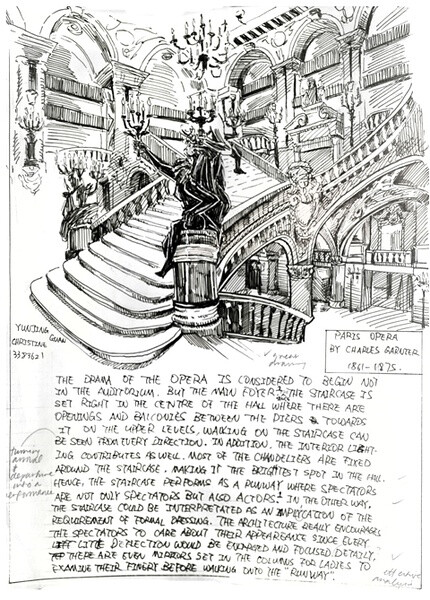 YUNJING
CHRISTINE GUAN
3383621
great
drawing
PARIS OPERA
BY CHARLES GARNIER
1861-1875.
THE DRAMA OF THE OPERA IS CONSIDERED TO BEGIN NOT
IN THE AUDITORIUM, BUT THE MAIN FOYER. THE STAIRCASE IS
SET RIGHT IN THE CENTRE OF THE HALL WHERE THERE ARE
OPENINGS AND BALCONIES BETWEEN THE PIERS TOWARDS
IT ON THE UPPER LEVELS. WALKING ON THE STAIRCASE CAN
BE SEEN FROM EVERY DIRECTION. IN ADDITION, THE INTERIOR LIGHT-
ING CONTRIBUTES AS WELL. MOST OF THE CHANDELIERS ARE FIXED
AROUND THE STAIRCASE. MAKING IT THE BRIGHTEST SPOT IN THE HALL.
HENCE, THE STAIRCASE PERFORMS AS A RUNWAY WHERE SPECTATORS
ARE NOT ONLY SPECTATORS BUT ALSO ACTORS! IN THE OTHER WAY,
THE STAIRCASE COULD BE INTERPRETATED AS AN IMPLYCATION OF THE
REQUIREMENT OF FORMAL DRESSING. THE ARCHITECTURE REALLY ENCOURAGES
THE SPECTATORS TO CARE ABOUT THEIR APPEAREANCE SINCE EVERY
LITTLE DEFLECTION WOULD BE ENLARGED AND FOCUSED. DETAILY,
THERE ARE EVEN MIRRORS SET IN THE COLUMNS FOR LADIES TO
EXAMINE THEIR FINERY BEFORE WALKING ONTO THE "RUNWAY".
turning
arrival
&
departure
into a
performance
effective
analysis